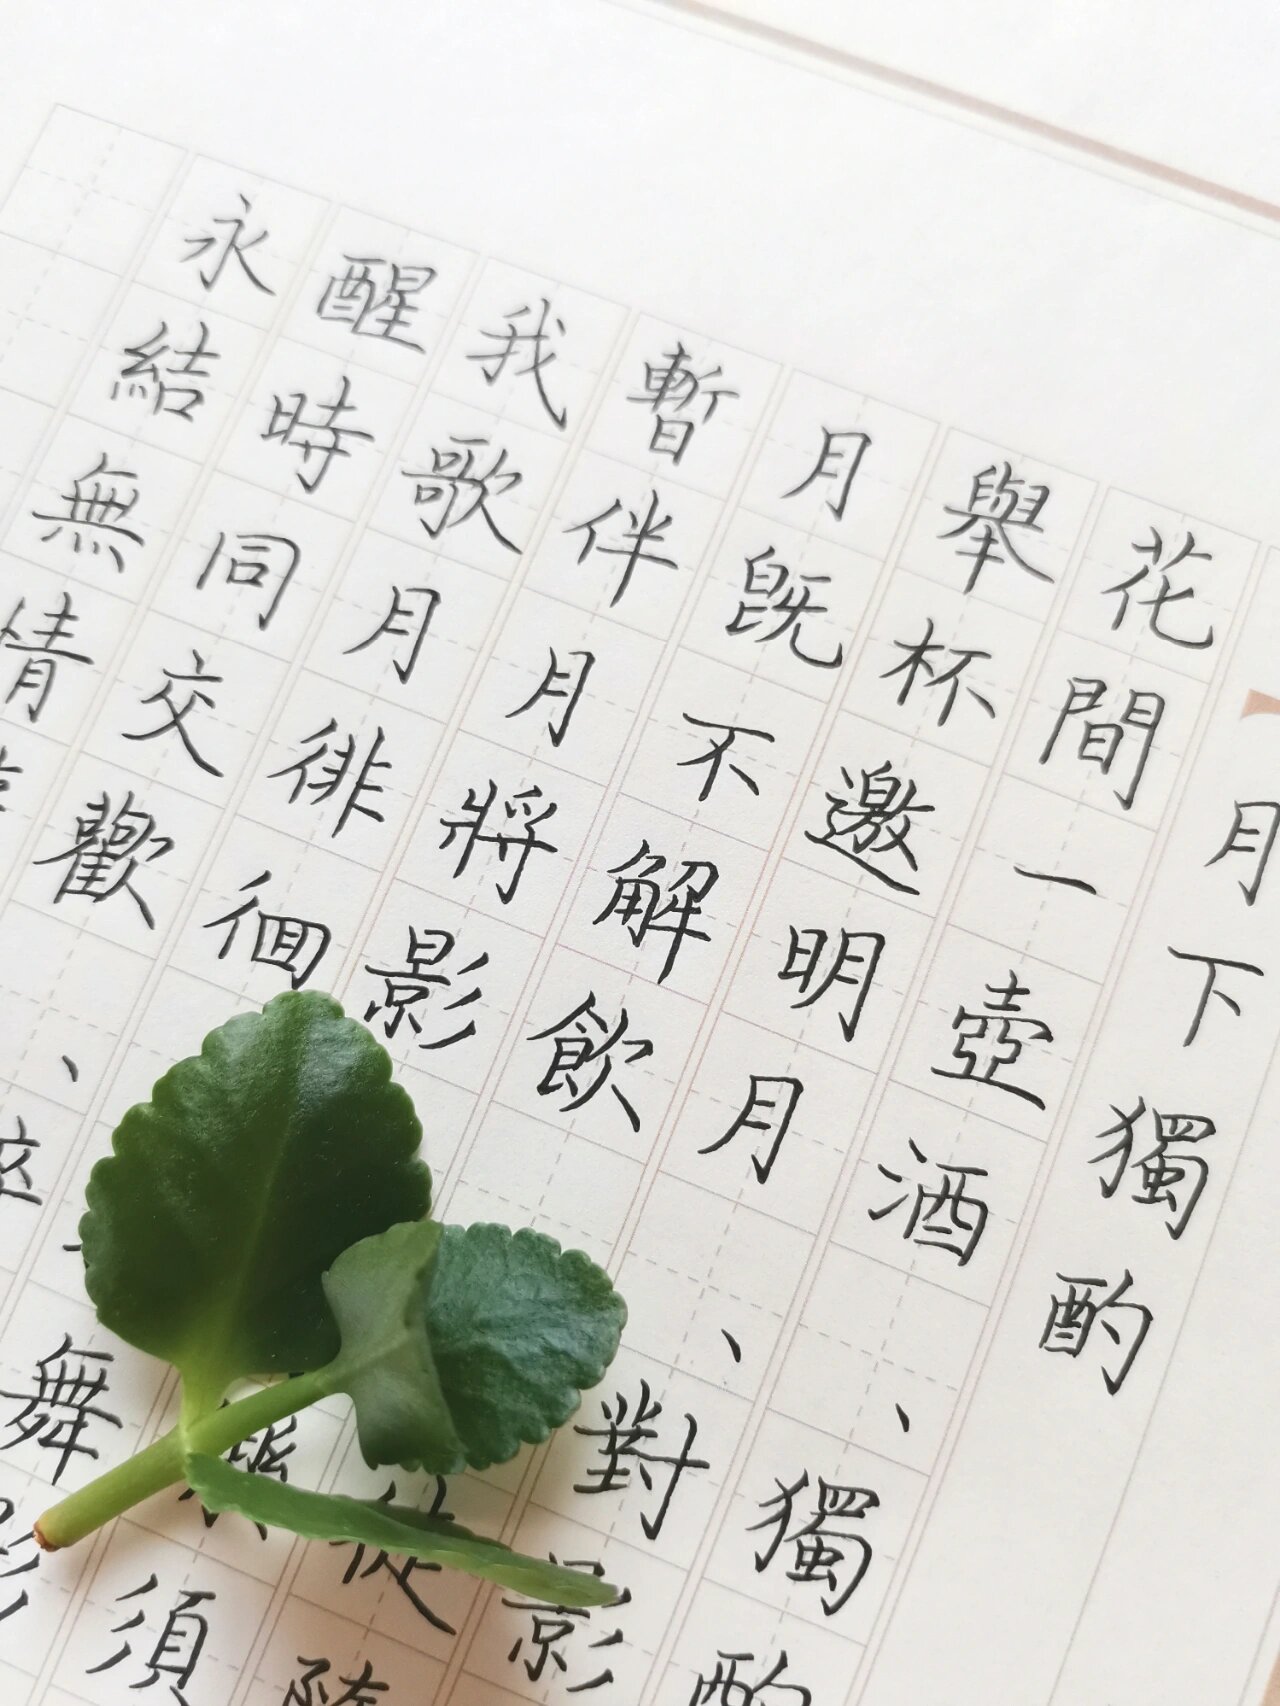 月下獨酌
花間一壺酒、獨酌
舉杯邀明月、對影
月既不解飲 徒隨
暫伴月將影 須
我歌月徘徊 舞影
醒時同交歡、
永結無情